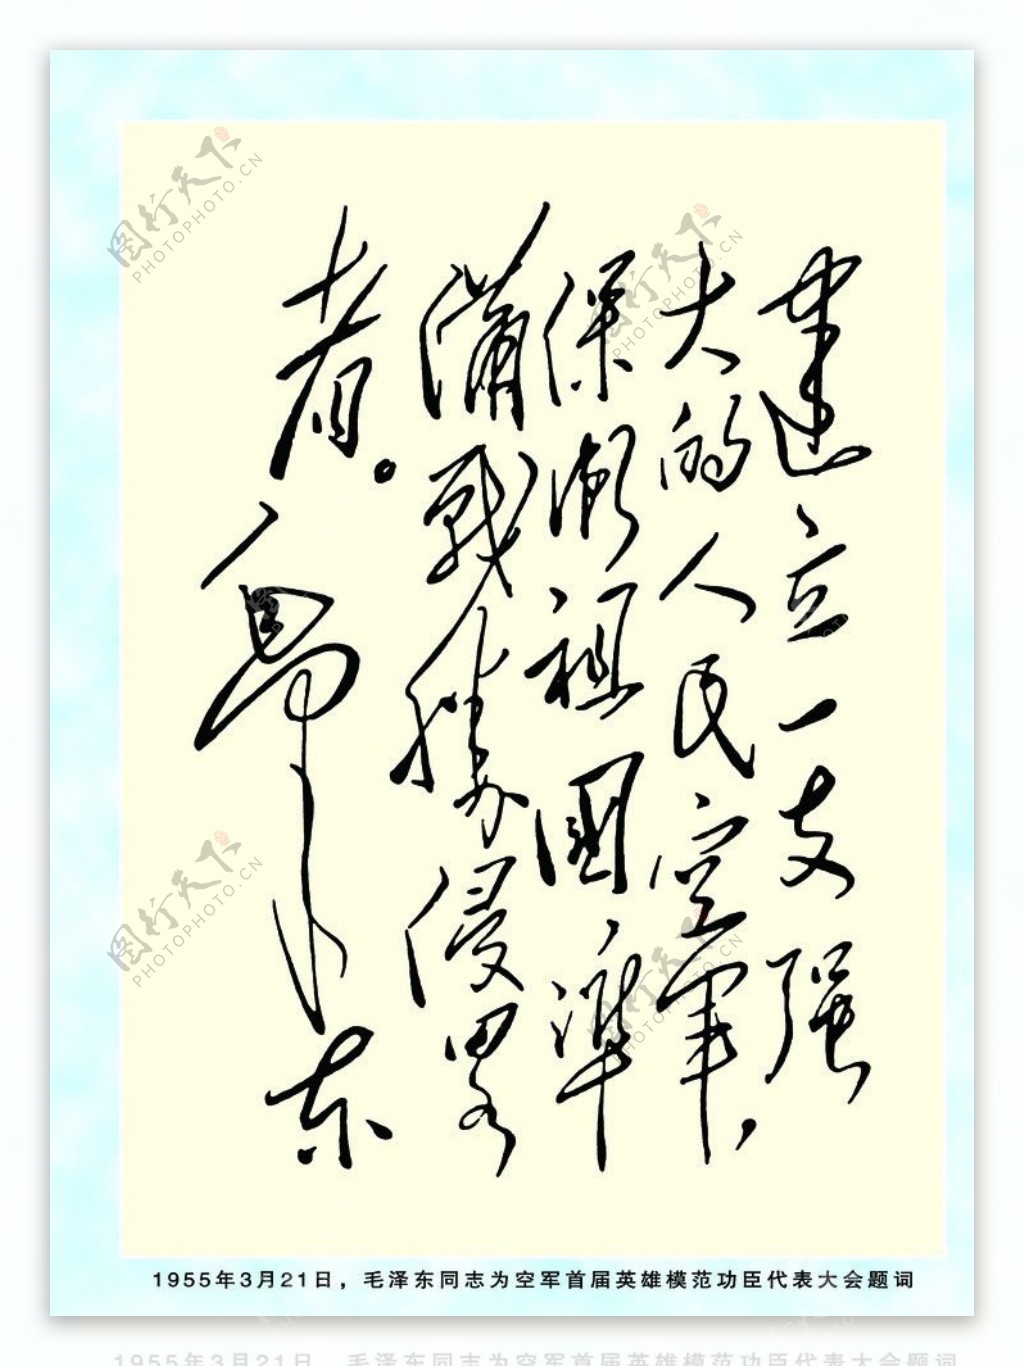 建立一支强
大的人民空軍，
保衛祖國、準
備戰勝侵畧
者。
毛澤东
1955年3月21日，毛泽东同志为空军首届英雄模范功臣代表大会题词
图行天下
PHOTOPHOTO.CN
图行天下
PHOTOPHOTO.CN
图行天下
PHOTOPHOTO.CN
图行天下
PHOTOPHOTO.CN
1955年3月21日，毛泽东同志为空军首届英雄模范功臣代表大会题词